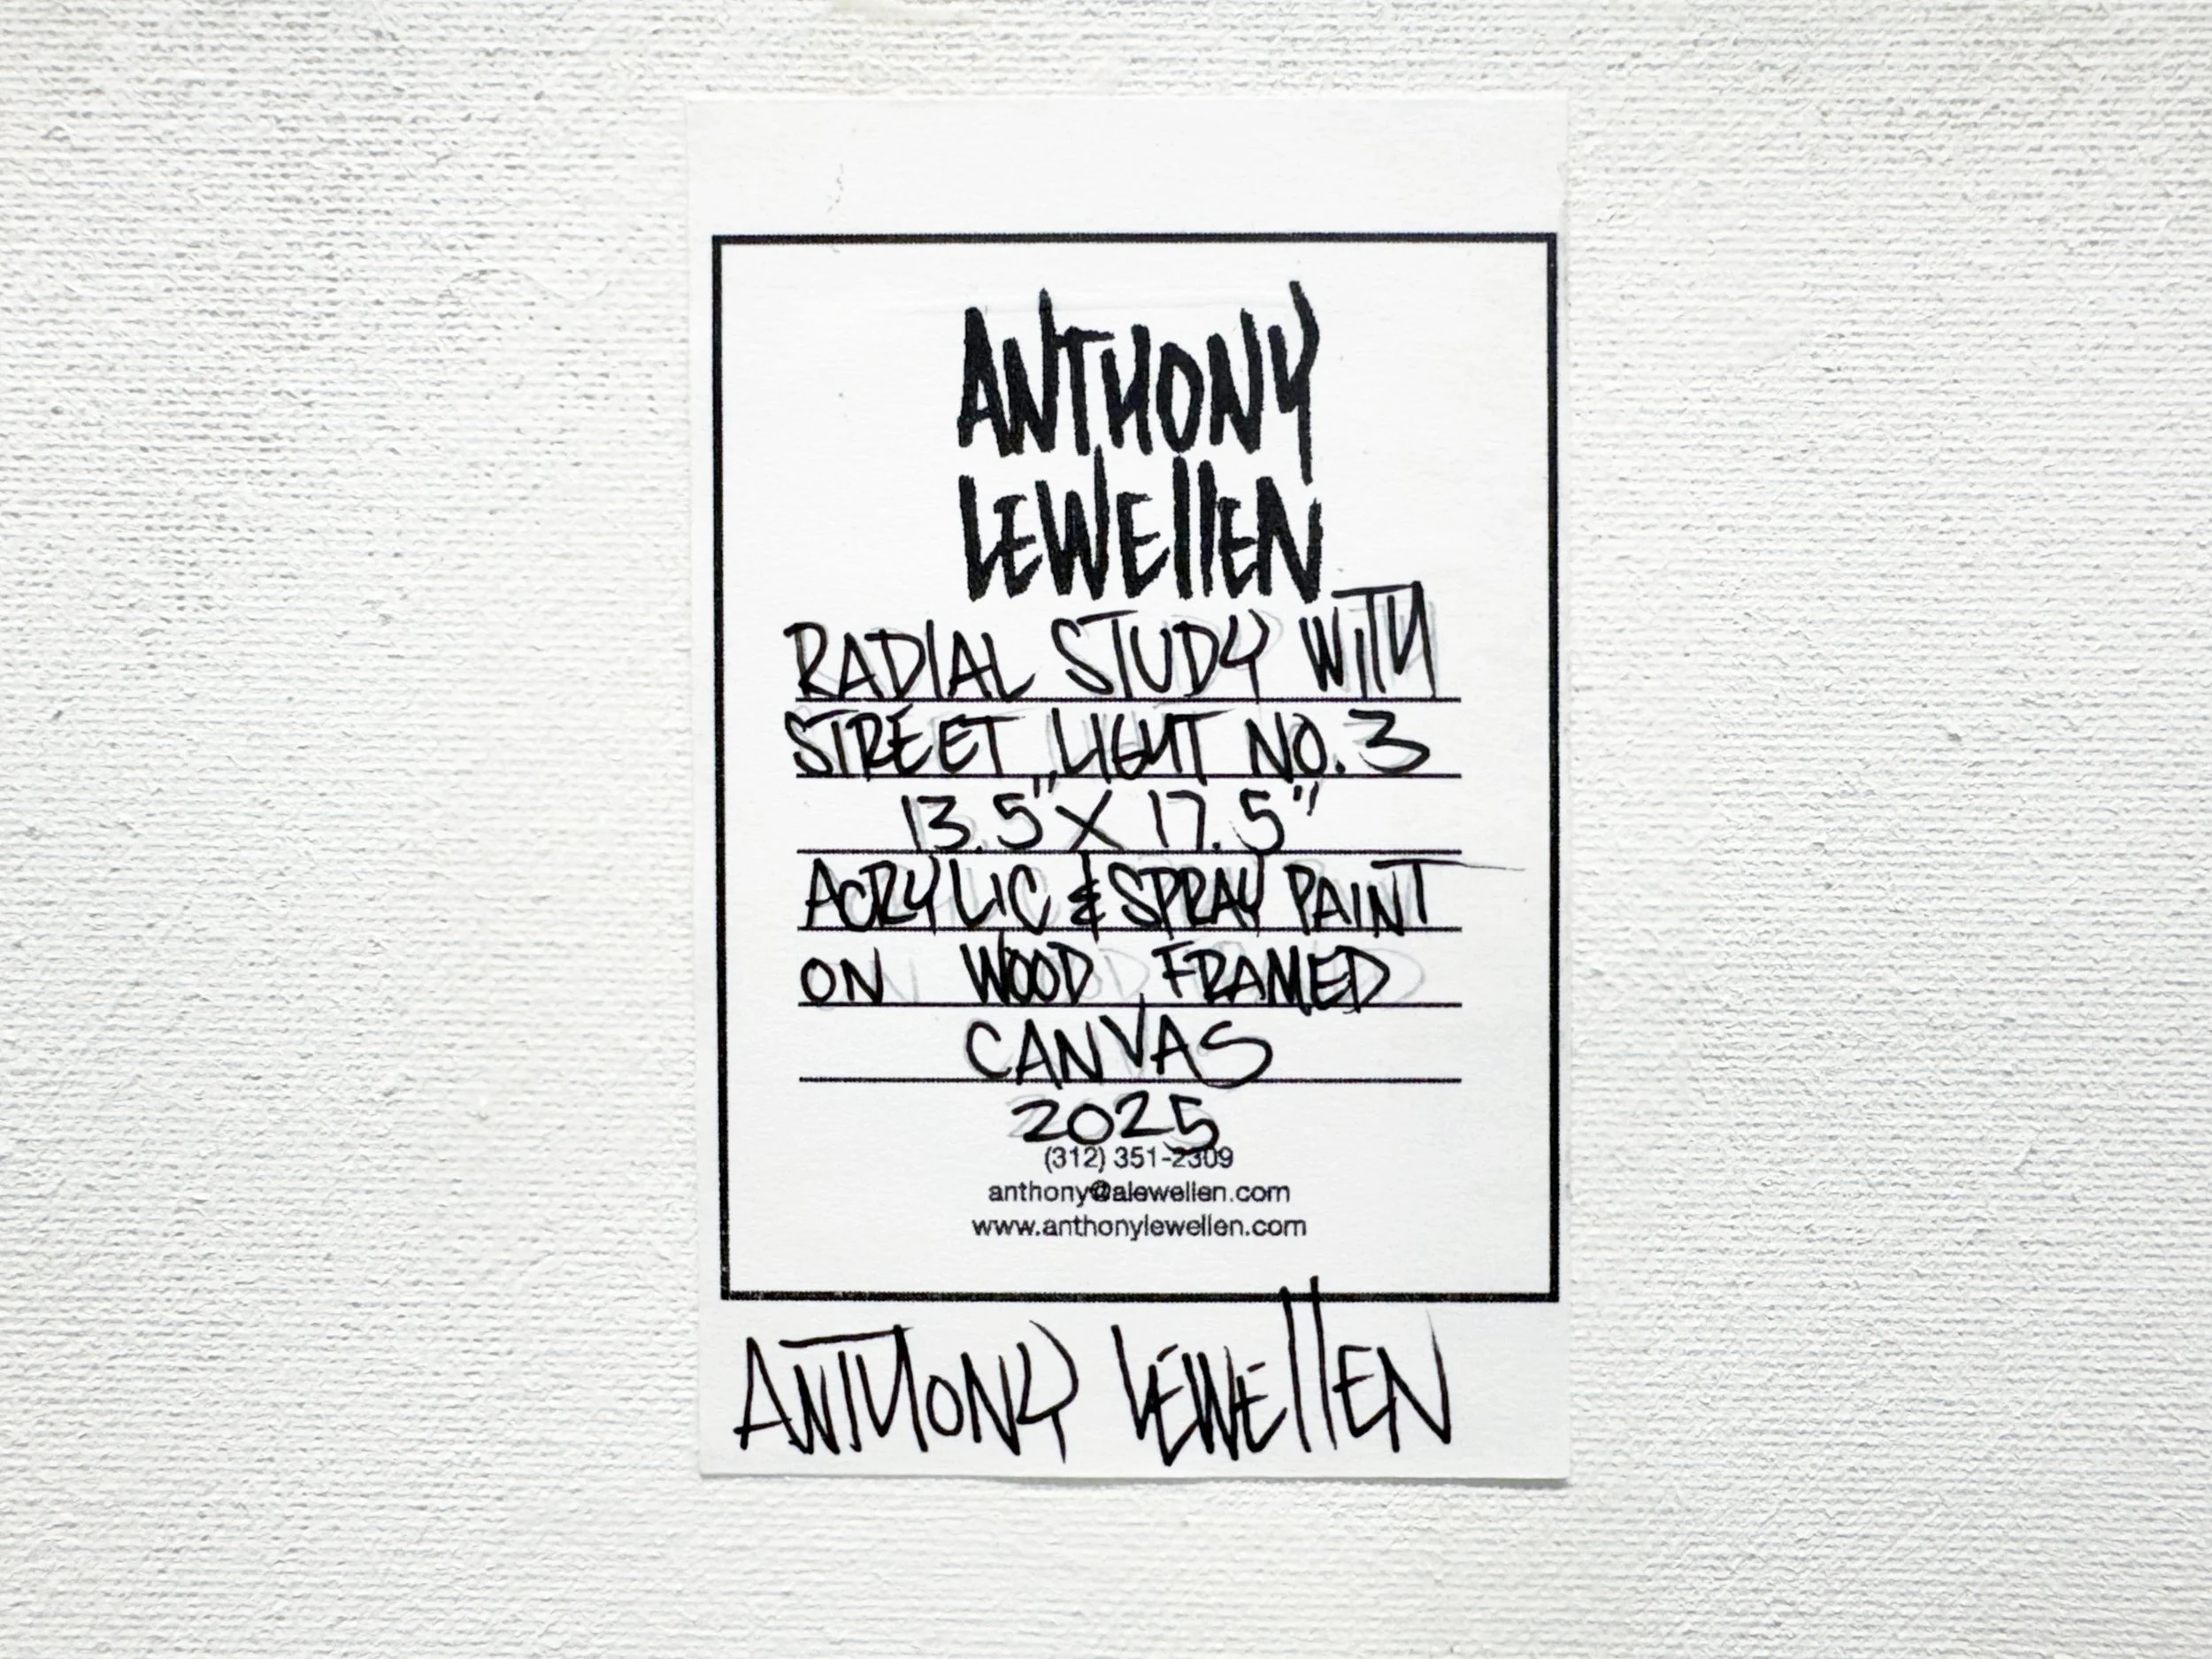 ANTHONY
LEWELLEN
RADIAL STUDY WITH
STREET LIGHT NO. 3
13.5" X 17.5"
ACRYLIC & SPRAY PAINT
ON WOOD FRAMED
CANVAS
2025
(312) 351-2309
anthony@alewellen.com
www.anthonylewellen.com
ANTHONY LEWELLEN